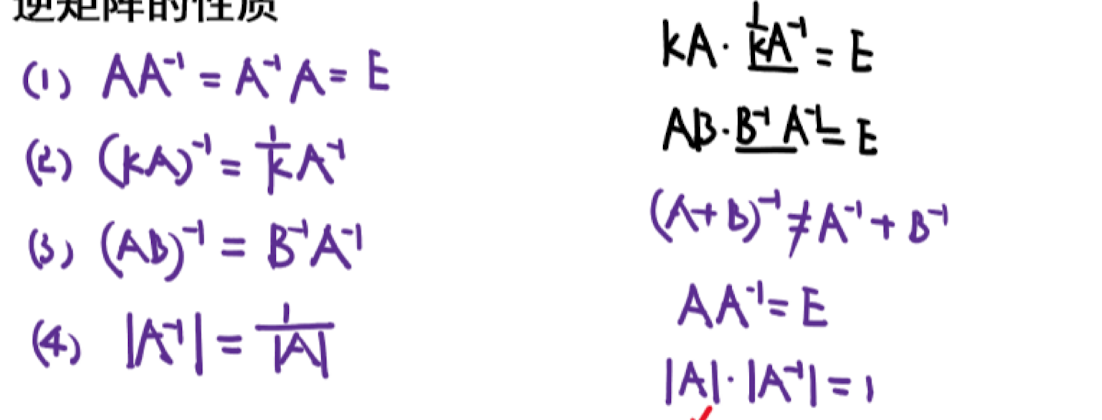 逆矩阵的性质
(1) AA⁻¹ = A⁻¹A = E
(2) (kA)⁻¹ = 1/k A⁻¹
(3) (AB)⁻¹ = B⁻¹A⁻¹
(4) |A⁻¹| = 1/|A|
kA · 1/k A⁻¹ = E
AB · B⁻¹ A⁻¹ = E
(A+B)⁻¹ ≠ A⁻¹ + B⁻¹
AA⁻¹ = E
|A| · |A⁻¹| = 1